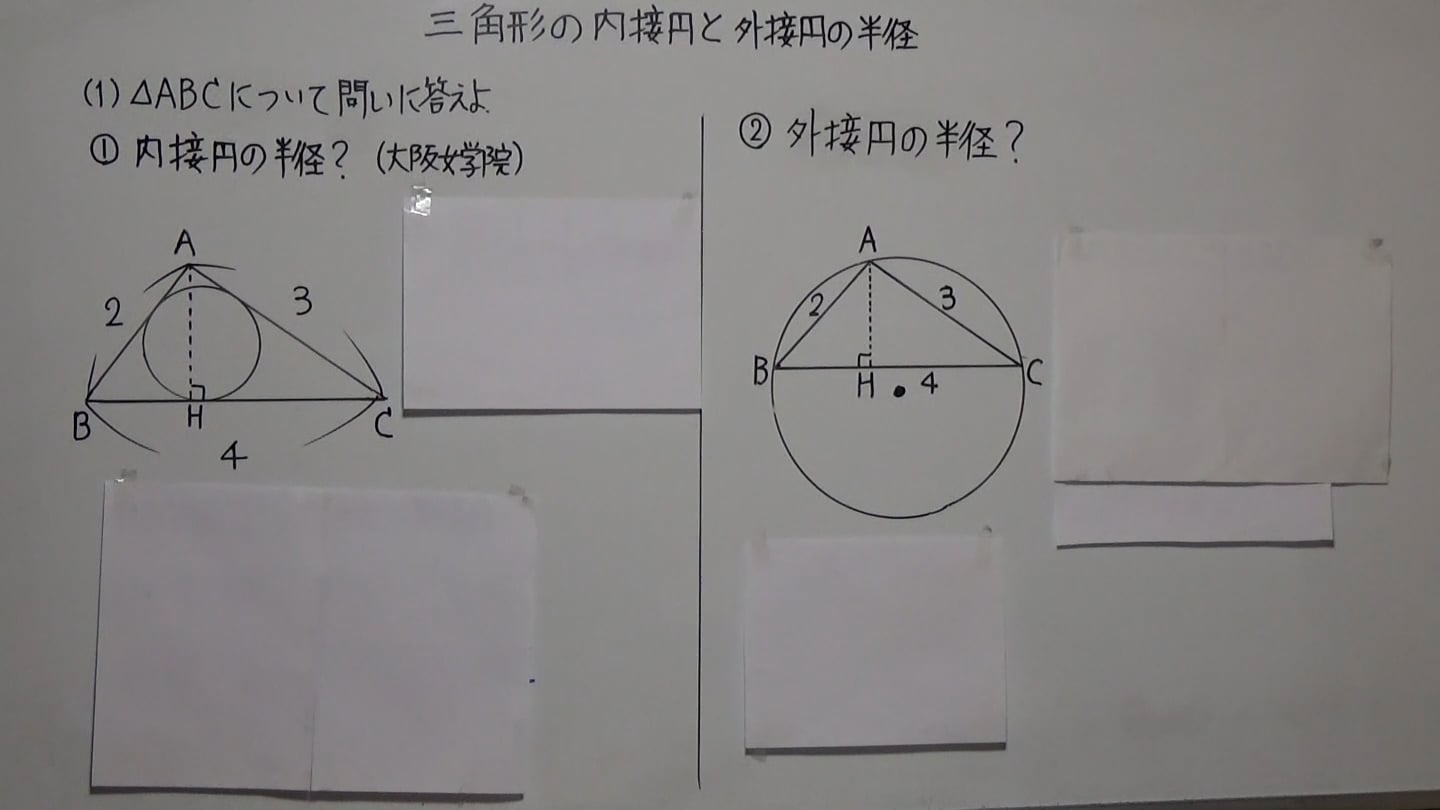 三角形の内接円と外接円の半径
(1) △ABCについて問いに答えよ.
① 内接円の半径? (大阪女学院)
A
2
3
B
H
C
4
② 外接円の半径?
A
2
3
B
H
4
C